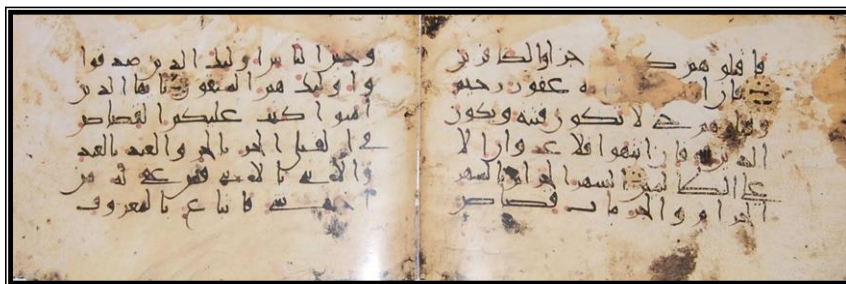 فاقتلوهم جزاء الكافرين
فان غفور رحيم
وقتلوهم حتى لا تكون فتنة ويكون
الدين فان انتهوا فلا عدوان الا
على الظلمين الشهر الحرام بالشهر
الحرام والحرمات قصاص
وحين الباس اوليك الذين صدقوا
واوليك هم المتقون يايها الذين
امنوا كتب عليكم القصاص
في القتلى الحر بالحر والعبد بالعبد
والانثى بالانثى فمن عفي له من
اخيه شي فاتباع بالمعروف